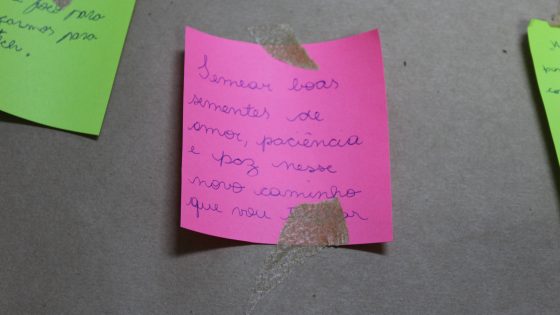 para
para
Semear boas
sementes de
amor, paciência
e paz nesse
novo caminho
que vou